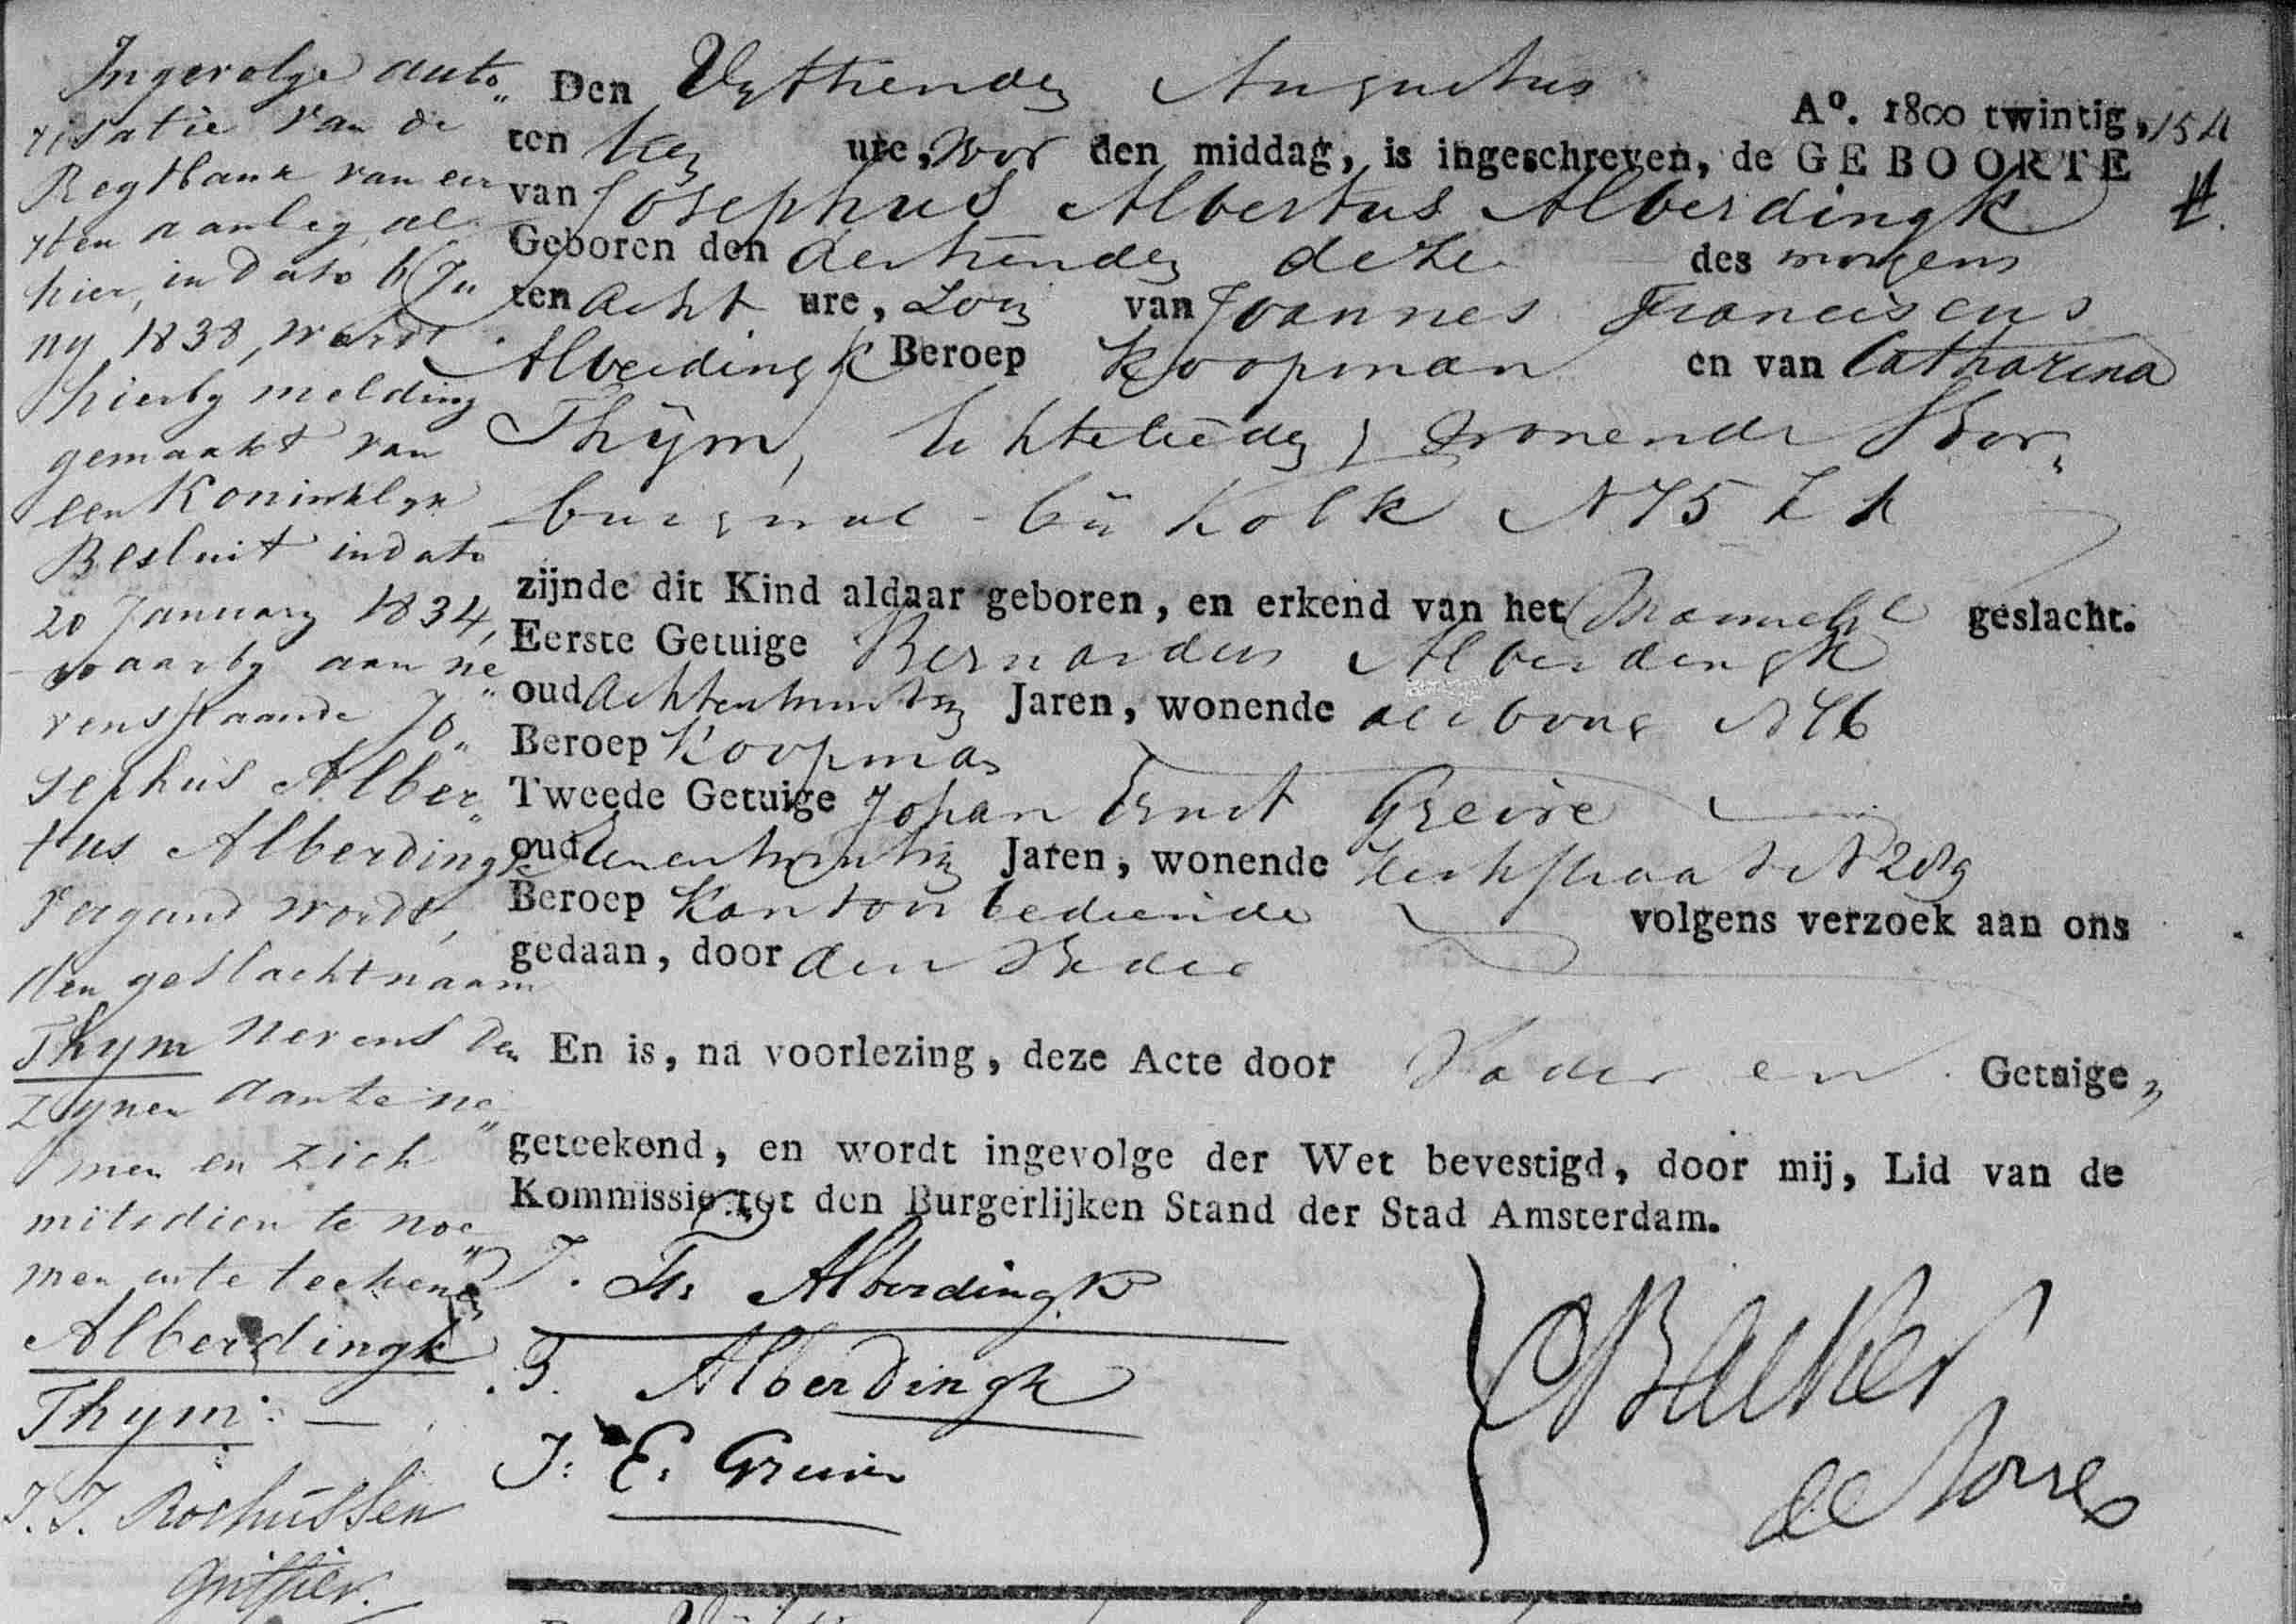 Ingevolge auto„
risatie van de
Regtbank van eer
sten aanleg al
hier, in dato 6 Ju
ny 1838, wordt
hierby melding
gemaakt van
een Koninklyk
Besluit in dato
20 January 1834,
waarby aan ne„
vensstaande Jo„
sephus Alber„
tus Alberdingk
vergund wordt,
den geslachtnaam
Thym nevens den
zynen aan te ne„
men en zich
mitsdien te noe„
men en te teekenen
Alberdingk
Thym. —
J. J. Rochussen
Griffier.
Den Vyftienden Augustus A°. 1800 twintig, 154
ten tien ure, voor den middag, is ingeschreven, de GEBOORTE
van Josephus Albertus Alberdingk
Geboren den dertienden deze des morgens
ten acht ure, Zoon van Joannes Franciscus
Alberdingk Beroep Koopman en van Catharina
Thijm, Echtelieden, wonende Voor„
burgwal bij Kolk N 75 Z 1
zijnde dit Kind aldaar geboren, en erkend van het Mannelyk geslacht.
Eerste Getuige Bernardus Alberdingk
oud achtentwintig Jaren, wonende N 46
Beroep Koopman
Tweede Getuige Johan Ernst Greive
oud Eenentwintig Jaren, wonende Kerkstraat N 289
Beroep Kantoorbediende volgens verzoek aan ons
gedaan, door den Vader
En is, na voorlezing, deze Acte door Vader en Getuigen
geteekend, en wordt ingevolge der Wet bevestigd, door mij, Lid van de
Kommissie tot den Burgerlijken Stand der Stad Amsterdam.
J. Fs Alberdingk
B. Alberdingk
J: E. Greive
CBacker